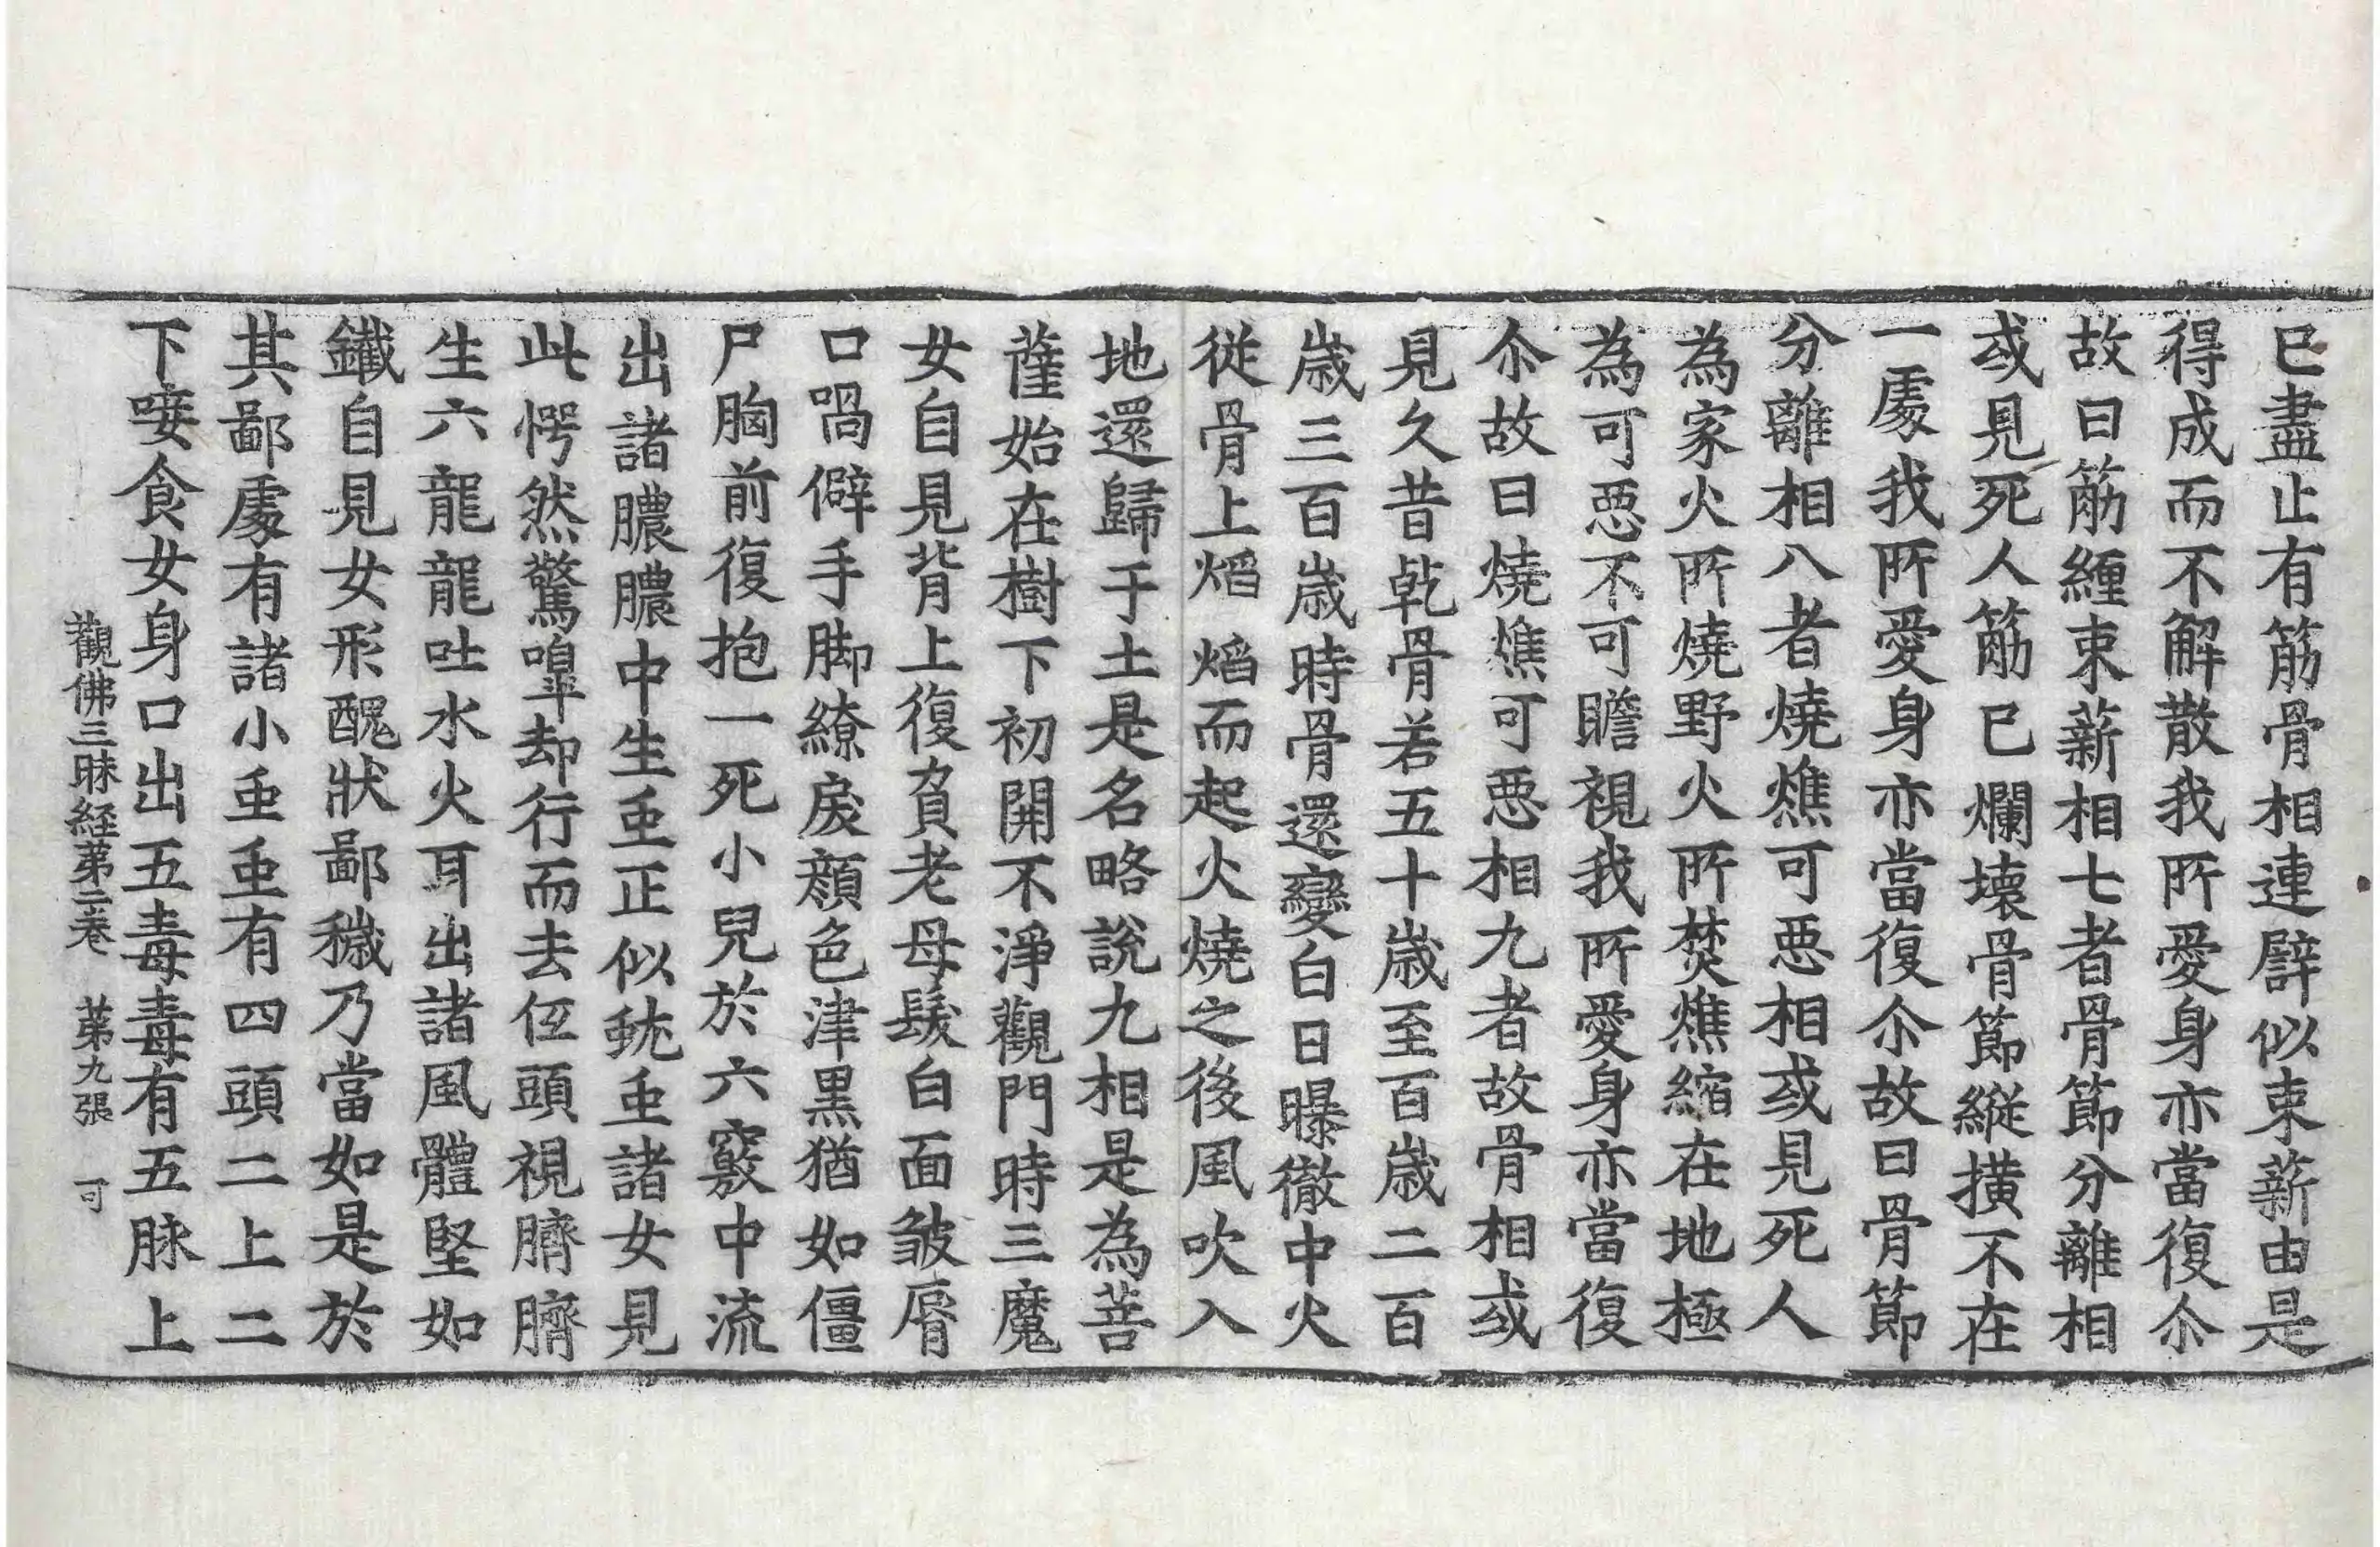 已盡止有筋骨相連臂似束薪由是
得成而不解散我所愛身亦當復尒
故曰筋纏束薪相七者骨節分離相
或見死人筋已爛壞骨節縱橫不在
一處我所愛身亦當復尒故曰骨節
分離相八者燒燋可惡相或見死人
為家火所燒野火所焚燋縮在地極
為可惡不可瞻視我所愛身亦當復
尒故曰燒燋可惡相九者故骨相或
見久昔乾骨若五十歲至百歲二百
歲三百歲時骨還變白日曝徹中火
從骨上焰焰而起火燒之後風吹入
地還歸于土是名略說九相是為菩
薩始在樹下初開不淨觀門時三魔
女自見背上復負老母髮白面皺脣
口喎僻手脚繚戾顏色津黑猶如僵
尸胸前復抱一死小兒於六竅中流
出諸膿膿中生䖝正似蚘䖝諸女見
此愕然驚嘷却行而去仾頭視臍臍
生六龍龍吐水火耳出諸風體堅如
鐵自見女形醜狀鄙穢乃當如是於
其鄙處有諸小䖝䖝有四頭二上二
下唼食女身口出五毒毒有五脉上
觀佛三昧経苐二卷 苐九張 可